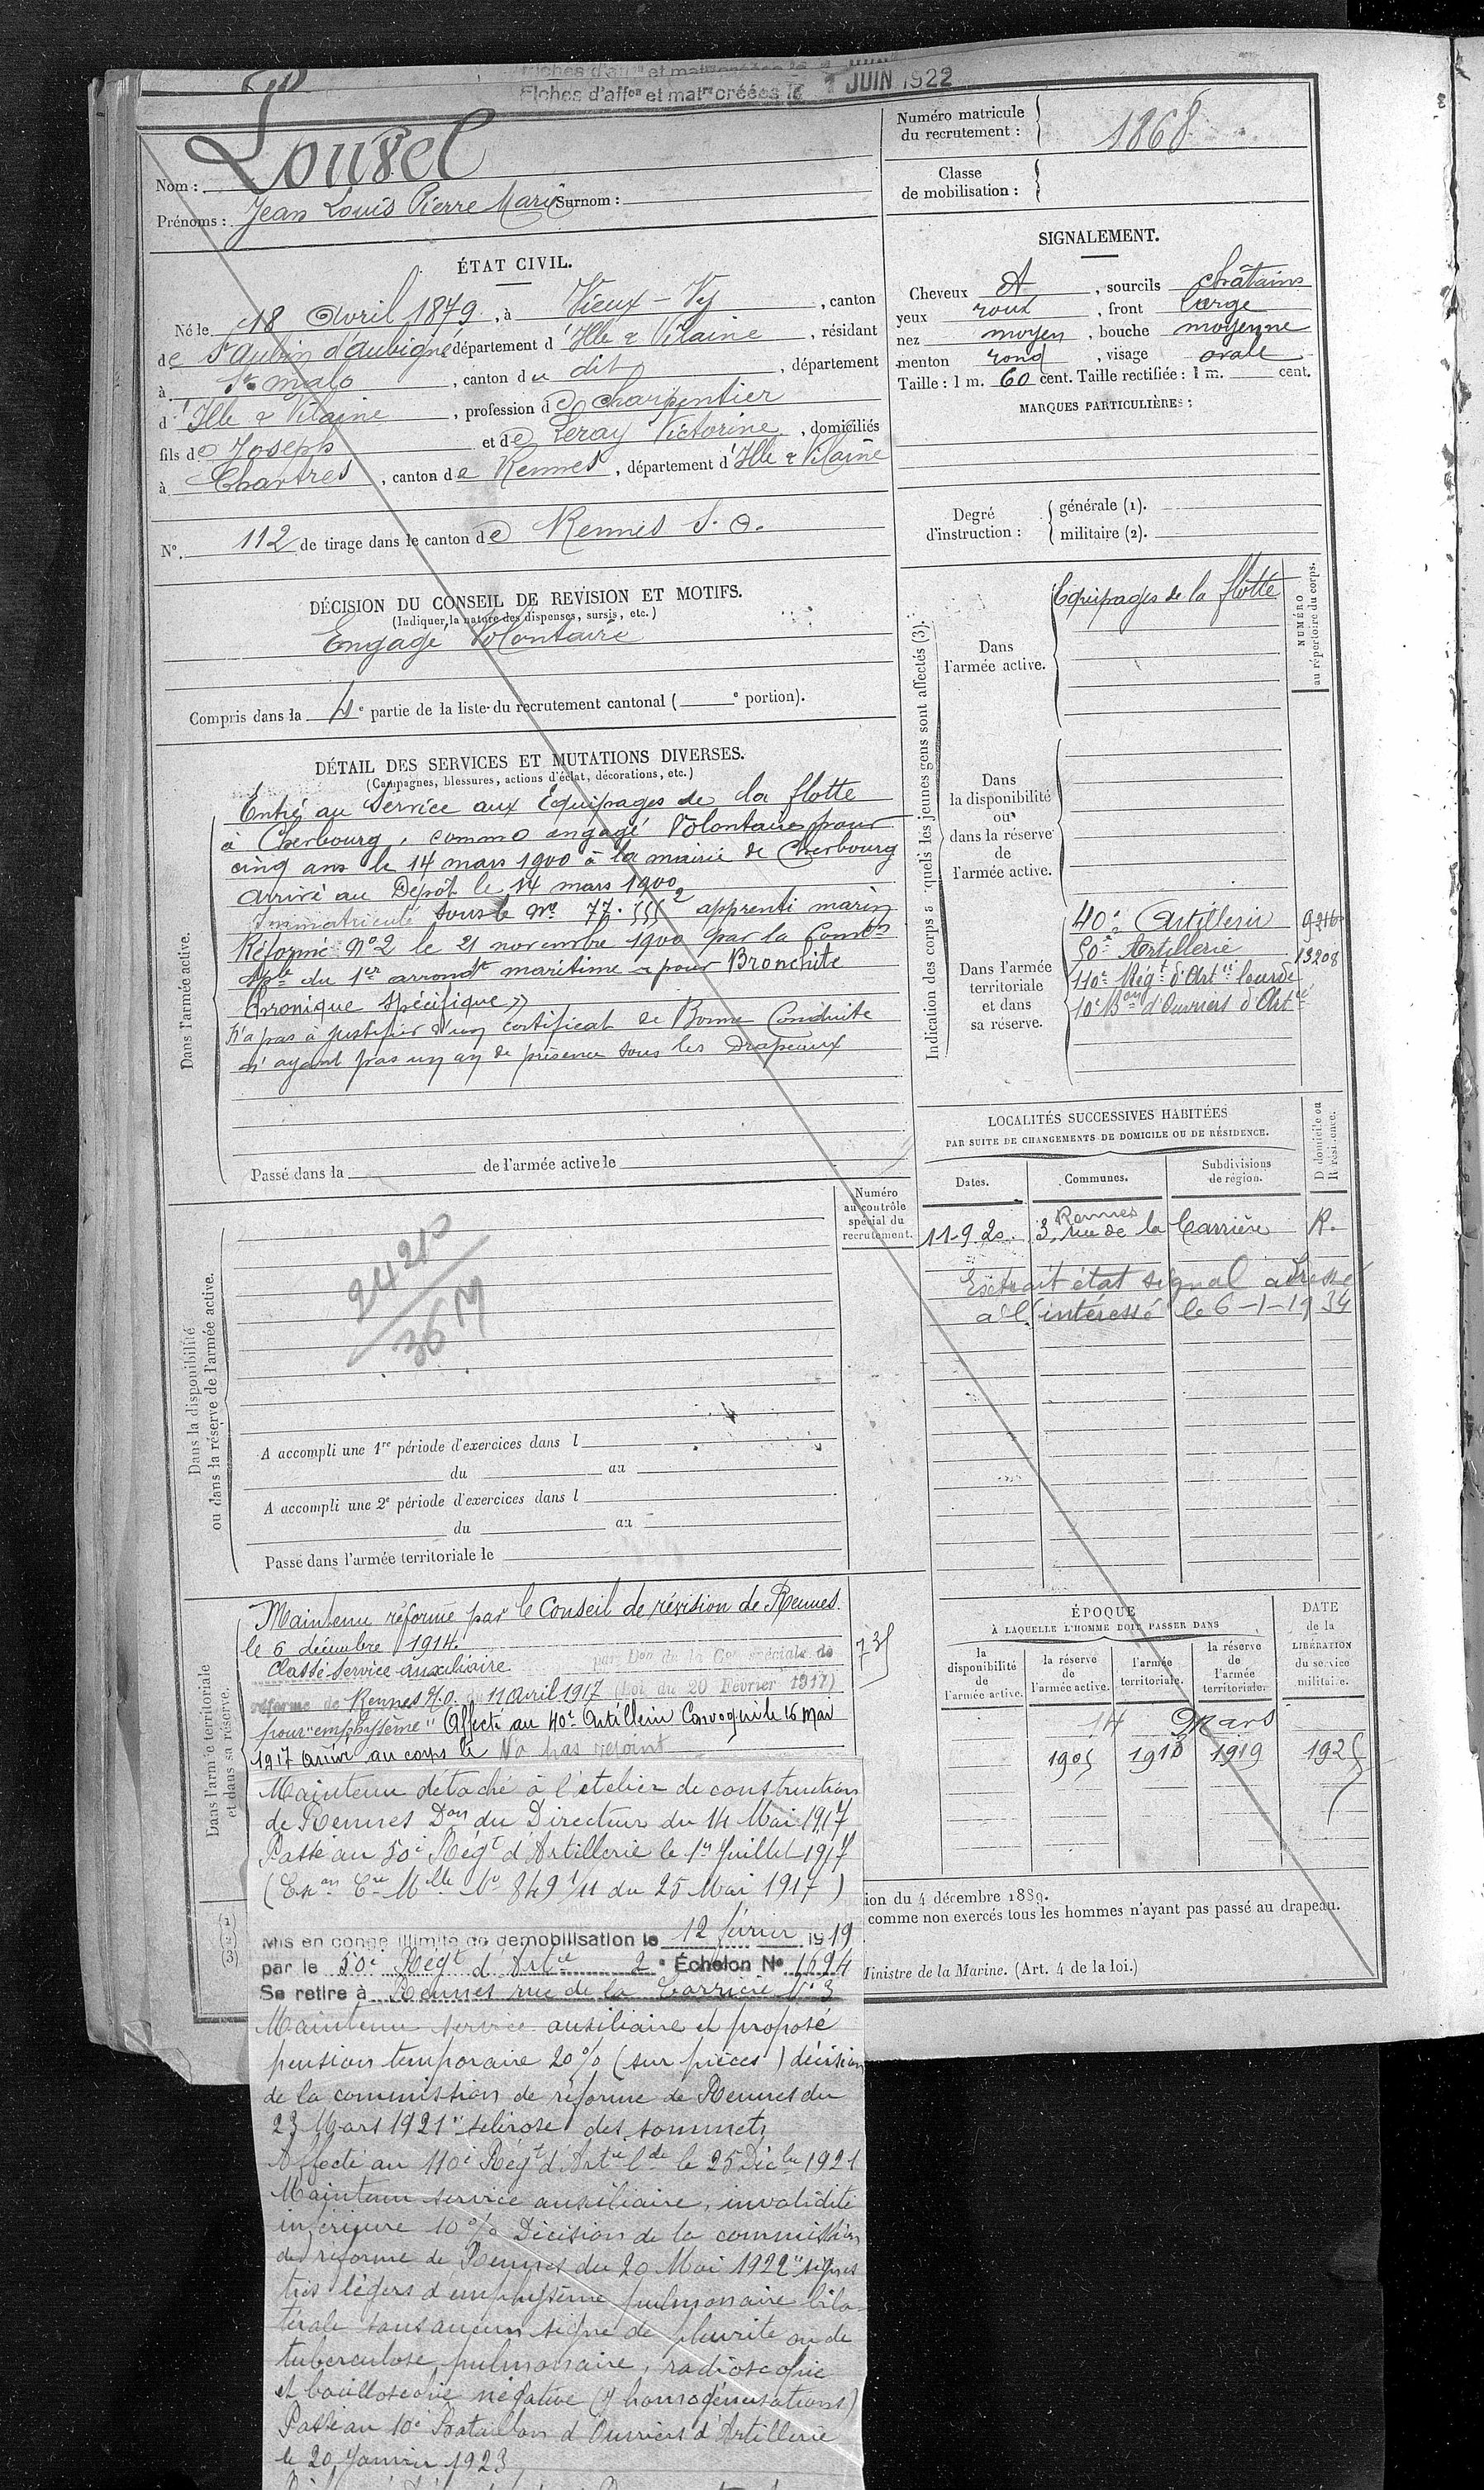 Fiches d'aff.on et mat.re créées le 1 JUIN 1922
Nom : Louvel
Prénoms : Jean Louis Pierre Marie Surnom :
Numéro matricule du recrutement : 1868
Classe de mobilisation :
ÉTAT CIVIL.
Né le 18 Avril 1879, à Vieux-Vy, canton
de St Aubin d'aubigné département d'Ille & Vilaine, résidant
à St malo, canton du dit, département
d'Ille & Vilaine, profession de charpentier
fils de Joseph et de Leray Victorine, domiciliés
à Chartres, canton de Rennes, département d'Ille & Vilaine
N°. 112 de tirage dans le canton de Rennes S. O.
SIGNALEMENT.
Cheveux A, sourcils châtains
yeux roux, front large
nez moyen, bouche moyenne
menton rond, visage ovale
Taille : 1 m. 60 cent. Taille rectifiée : 1 m. cent.
MARQUES PARTICULIÈRES :
Degré d'instruction : générale (1). militaire (2).
DÉCISION DU CONSEIL DE REVISION ET MOTIFS.
(Indiquer la nature des dispenses, sursis, etc.)
Engagé Volontaire
Compris dans la 4e partie de la liste du recrutement cantonal ( e portion).
DÉTAIL DES SERVICES ET MUTATIONS DIVERSES.
(Campagnes, blessures, actions d'éclat, décorations, etc.)
Dans l'armée active.
Entré au Service aux Equipages de la flotte
à Cherbourg, comme engagé Volontaire pour
cinq ans le 14 mars 1900 à la mairie de Cherbourg
Arrivé au Dépôt le 14 mars 1900
Immatriculé sous le No 77. apprenti marin
Réformé No 2 le 21 novembre 1900 par la Comon
Sple du 1er arrondt maritime pour Bronchite
Chronique Spécifique »
N'a pas à justifier d'un certificat de Bonne Conduite
n'ayant pas un an de présence sous les Drapeaux
Passé dans la de l'armée active le
Indication des corps auxquels les jeunes gens sont affectés (3).
NUMÉRO au répertoire du corps.
Dans l'armée active.
Equipages de la flotte
Dans la disponibilité ou dans la réserve de l'armée active.
Dans l'armée territoriale et dans sa réserve.
40e Artillerie
50e Artillerie 13208
110e Régt d'Artie lourde
10e Bon d'Ouvriers d'Artie
LOCALITÉS SUCCESSIVES HABITÉES
PAR SUITE DE CHANGEMENTS DE DOMICILE OU DE RÉSIDENCE.
Dates. Communes. Subdivisions de région. D domicile ou R résidence.
Rennes
11-9 20. 3, rue de la Carrière R.
Extrait état signal adressé
à l'intéressé le 6-1-1934
Numéro au contrôle spécial du recrutement.
Dans la disponibilité
ou dans la réserve de l'armée active.
36 M
A accompli une 1re période d'exercices dans l
du au
A accompli une 2e période d'exercices dans l
du au
Passé dans l'armée territoriale le
Dans l'armée territoriale
et dans sa réserve.
Maintenu réformé par le Conseil de révision de Rennes
le 6 décembre 1914.
Classé Service Auxiliaire par Don de la Con spéciale de
réforme de Rennes S/O. du 11 Avril 1917 (Loi du 20 Février 1917)
pour "emphysème" Affecté au 40e Artillerie Convoqué le 16 Mai
1917 arrivé au corps le No pas rejoint
Maintenu détaché à l'atelier de construction
de Rennes Don du Directeur du 14 Mai 1917
Passé au 50e Régt d'Artillerie le 1er Juillet 1917
(Exon Cre Mlle No 849 1/11 du 25 Mai 1917)
Mis en congé illimité de démobilisation le 12 février 1919
par le 50e Régt d'Artie 2e Échelon No 1694
Se retire à Rennes rue de la Carrière No 3
Maintenu service auxiliaire et proposé
pension temporaire 20% (sur pièces) décision
de la commission de réforme de Rennes du
23 Mars 1921 "sclérose des sommets
Affecté au 110e Régt d'Artie lde le 25 Décbre 1921
Maintenu service auxiliaire, invalidité
inférieure 10% Décision de la commission
de réforme de Rennes du 20 Mai 1922 "signes
très légers d'emphysème pulmonaire bila-
térale sans aucun signe de pleurite ou de
tuberculose pulmonaire, radioscopie
et bacilloscopie négative (homogénéisations)
Passé au 10e Bataillon d'Ouvriers d'Artillerie
le 20 Janvier 1923
ÉPOQUE
À LAQUELLE L'HOMME DOIT PASSER DANS
la disponibilité de l'armée active. la réserve de l'armée active. l'armée territoriale. la réserve de l'armée territoriale.
DATE de la LIBÉRATION du service militaire.
14 Mars
1905 1918 1919 1925
(1)
(2)
(3)
ion du 4 décembre 1889.
comme non exercés tous les hommes n'ayant pas passé au drapeau.
Ministre de la Marine. (Art. 4 de la loi.)